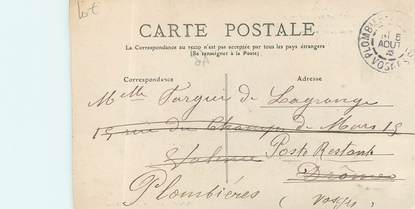 Lot
CARTE POSTALE
La Correspondance au recto n'est pas acceptée par tous les pays étrangers
(Se renseigner à la Poste)
Correspondance
Adresse
PLOMBIÈRES
AOUT
VOSGES
Melle Farguei de Lagrange
15 rue du Champ de Mars 15
Valence Poste Restante
Drôme
Plombières
(Vosges)